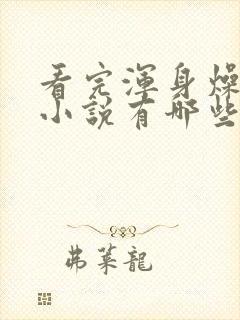 看完渾身燥
小說有哪些
弗萊龍